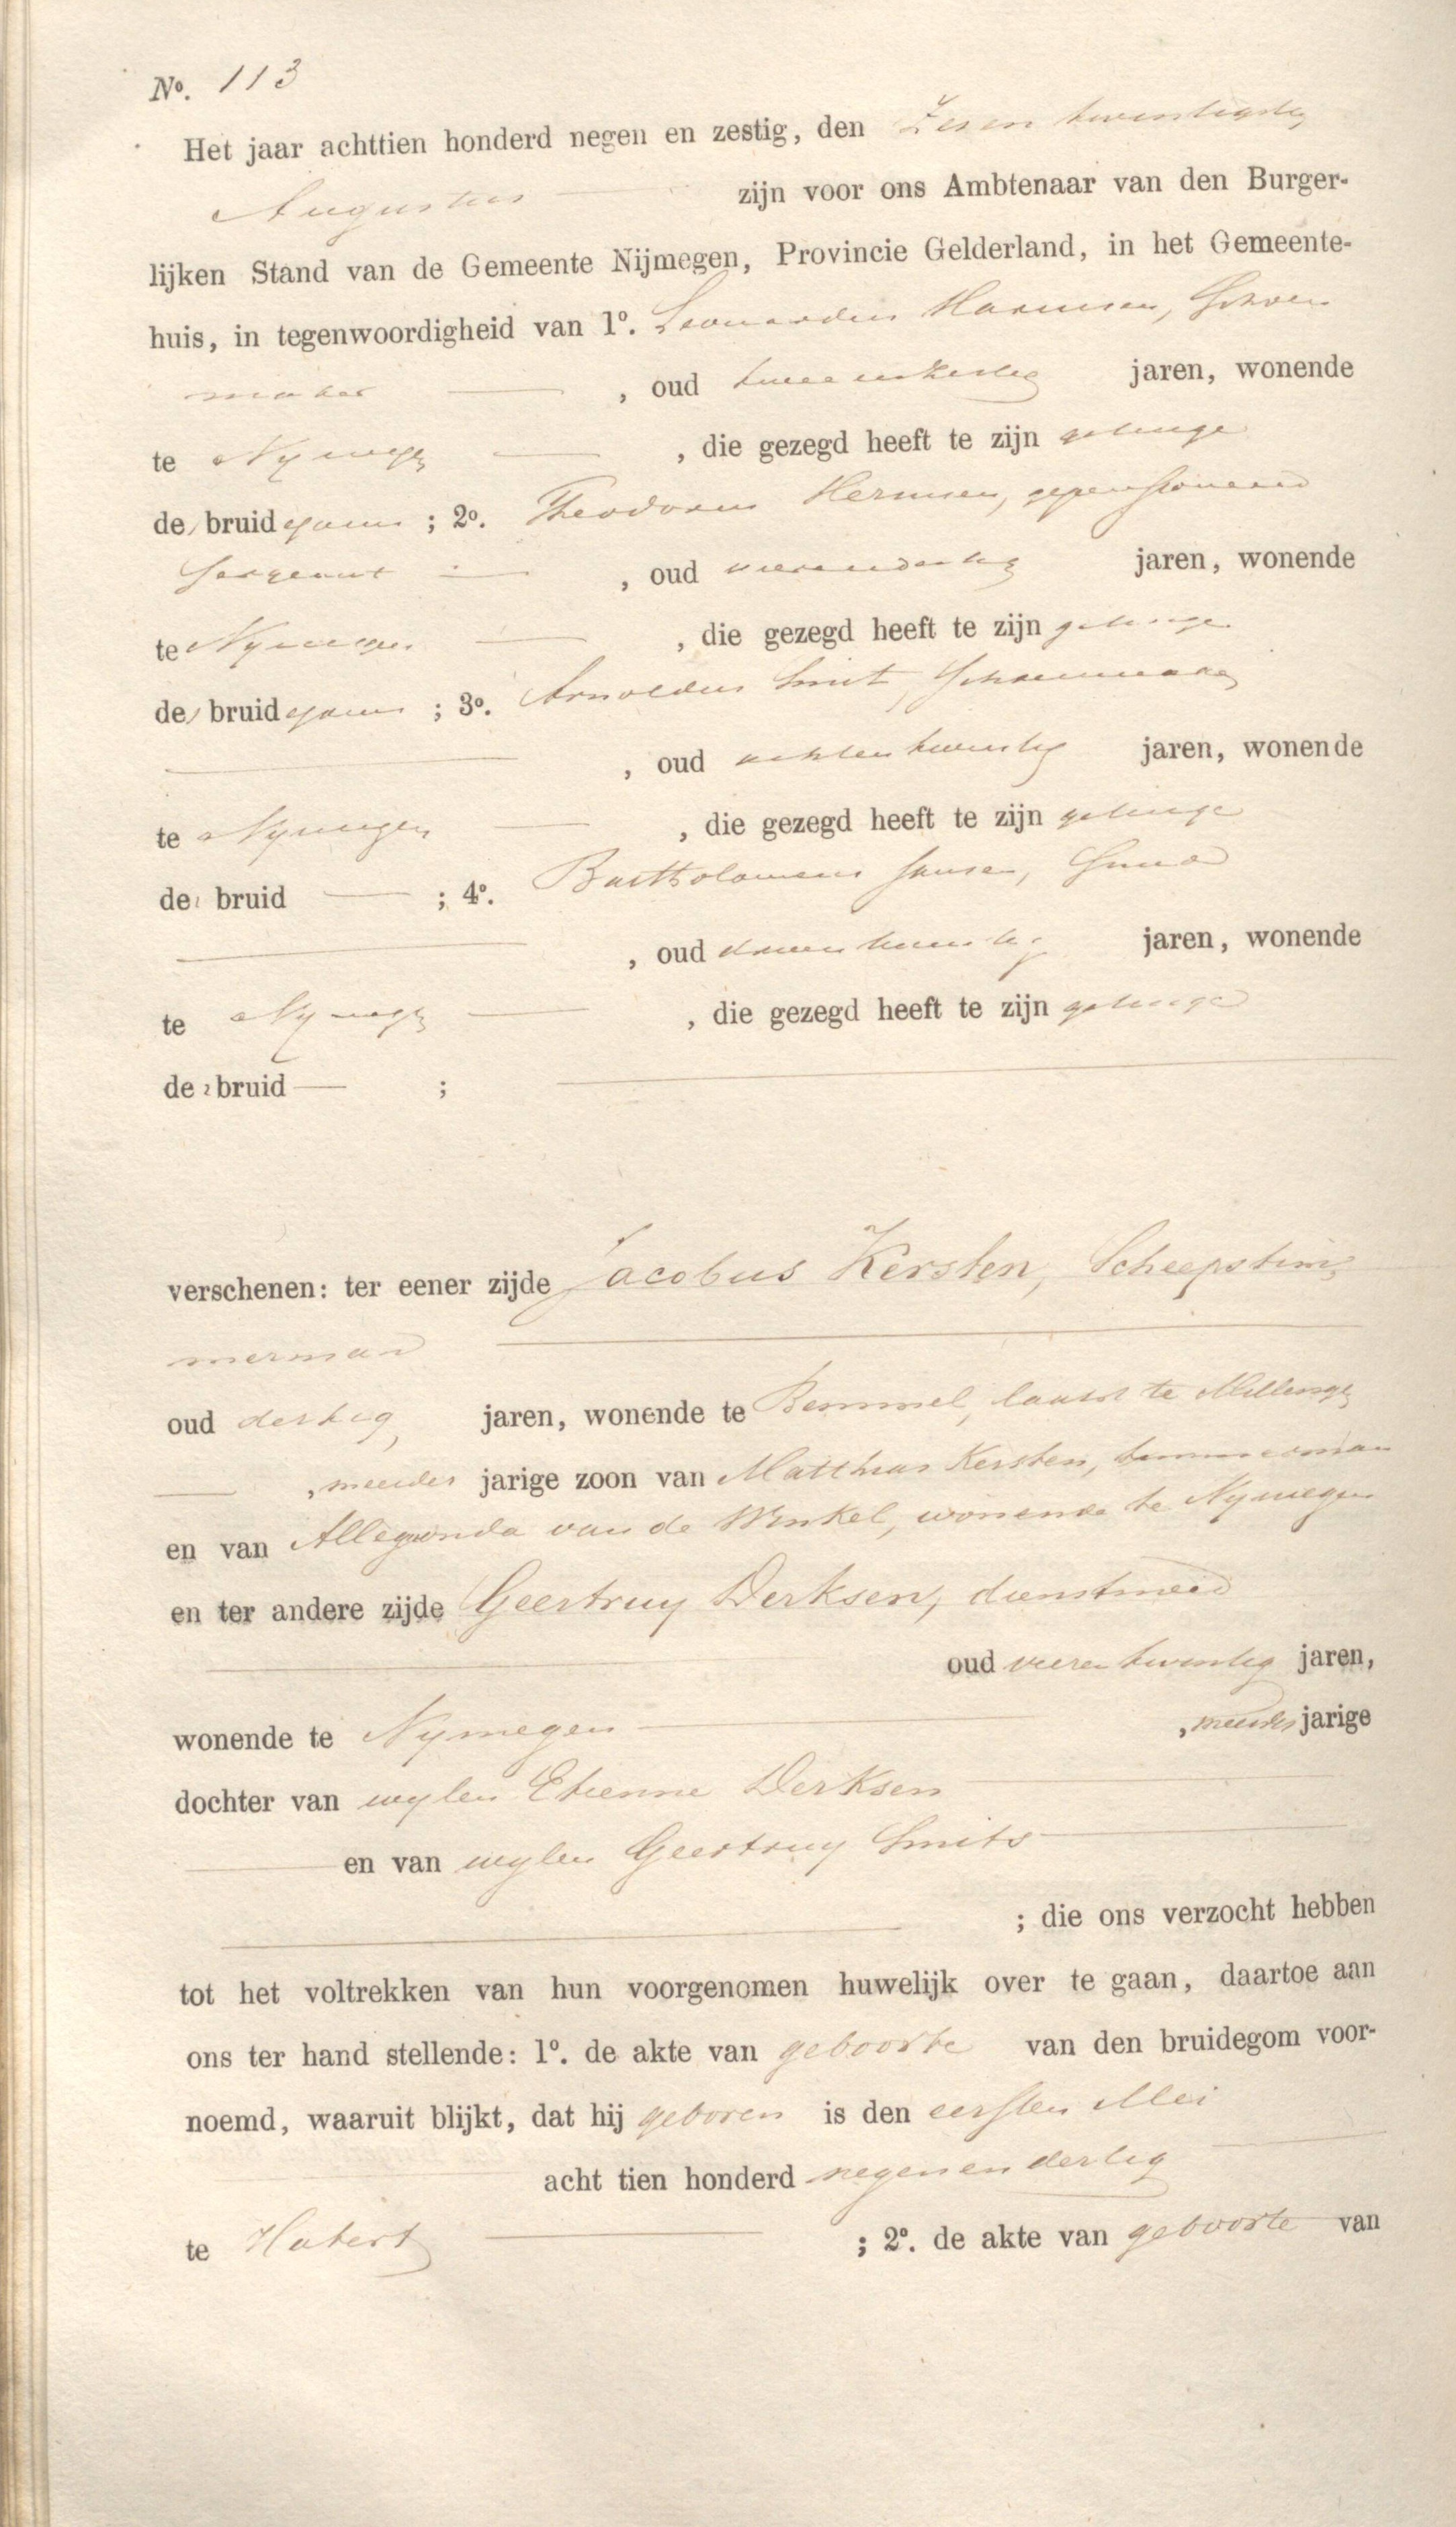 No. 113
Het jaar achttien honderd negen en zestig, den Zesen twintigsten
Augustus zijn voor ons Ambtenaar van den Burger-
lijken Stand van de Gemeente Nijmegen, Provincie Gelderland, in het Gemeente-
huis, in tegenwoordigheid van 1o. Leonardus Harmsen, Schoen
maker , oud jaren, wonende
te Nymegen , die gezegd heeft te zijn getuige
des bruidegoms ; 2o. Theodorus Hermsen, gepensioneerd
Sergeant , oud vierendertig jaren, wonende
te Nymegen , die gezegd heeft te zijn getuige
des bruidegoms ; 3o. Arnoldus Smit, Schoenmaker
, oud achtentwintig jaren, wonende
te Nymegen , die gezegd heeft te zijn getuige
der bruid ; 4o. Bartholomeus Jansen,
, oud jaren, wonende
te Nymegen , die gezegd heeft te zijn getuige
der bruid ;
verschenen: ter eener zijde Jacobus Kersten, Scheepstim-
merman
oud dertig jaren, wonende te Bemmel, laatst te Millingen
, meerder jarige zoon van Matthias Kersten, timmerman
en van Allegonda van de Winkel, wonende te Nymegen
en ter andere zijde Geertruy Derksen, dienstmeid
oud vierentwintig jaren,
wonende te Nymegen , meerder jarige
dochter van wylen Etienne Derksen
en van wylen Geertruy Smits
; die ons verzocht hebben
tot het voltrekken van hun voorgenomen huwelijk over te gaan, daartoe aan
ons ter hand stellende: 1o. de akte van geboorte van den bruidegom voor-
noemd, waaruit blijkt, dat hij geboren is den eersten Mei
acht tien honderd negenendertig
te Hatert ; 2o. de akte van geboorte van